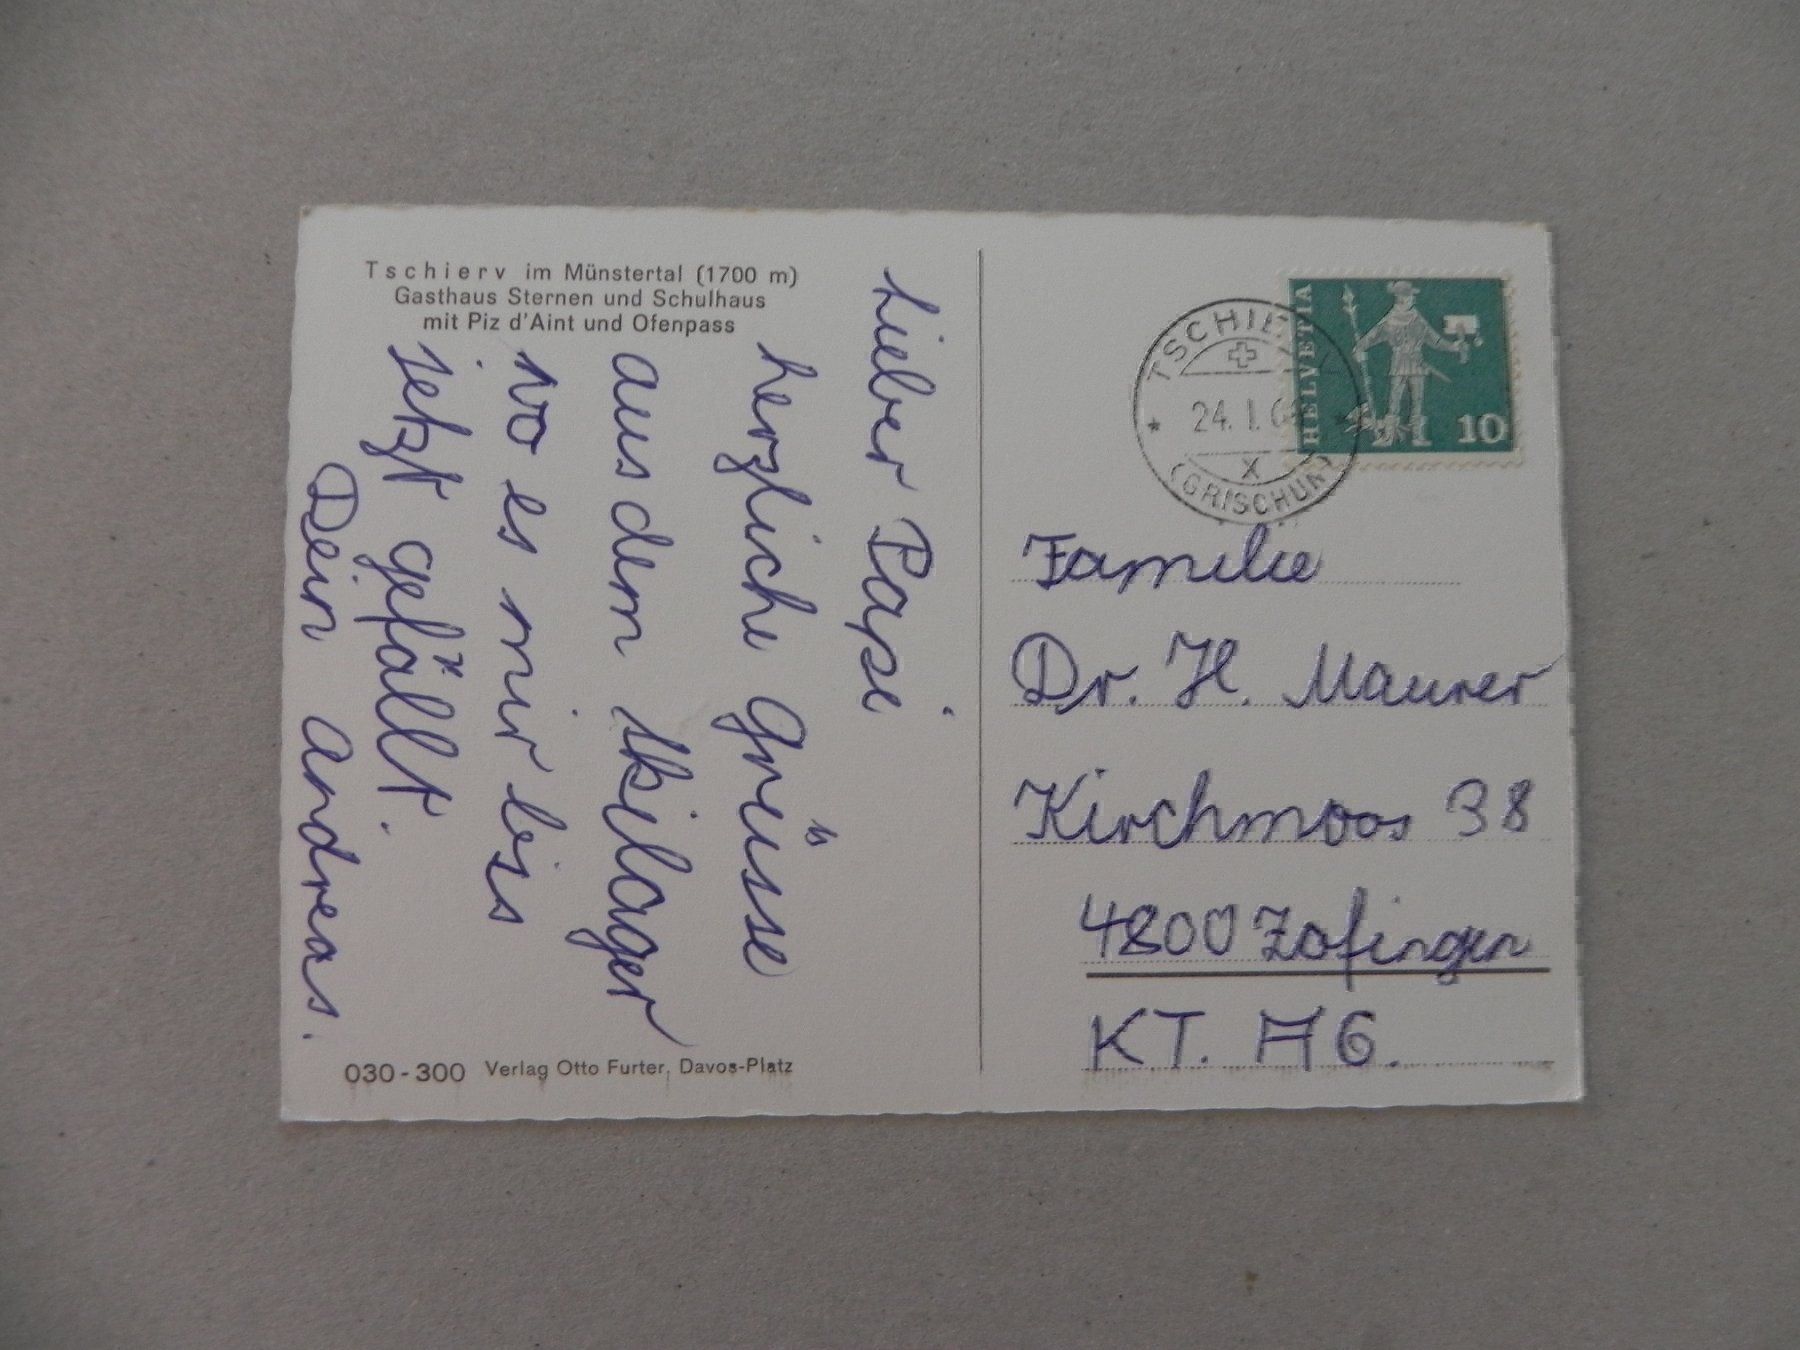 Tschierv im Münstertal (1700 m)
Gasthaus Sternen und Schulhaus
mit Piz d'Aint und Ofenpass
Lieber Papi
herzliche Grüsse
aus dem Skilager
wo es mir bis
jetzt gefällt.
Dein Andreas.
030-300 Verlag Otto Furter, Davos-Platz
HELVETIA
10
24. I.
X
(GRISCHUN)
Familie
Dr. H. Maurer
Kirchmoos 38
4800 Zofingen
KT. AG.